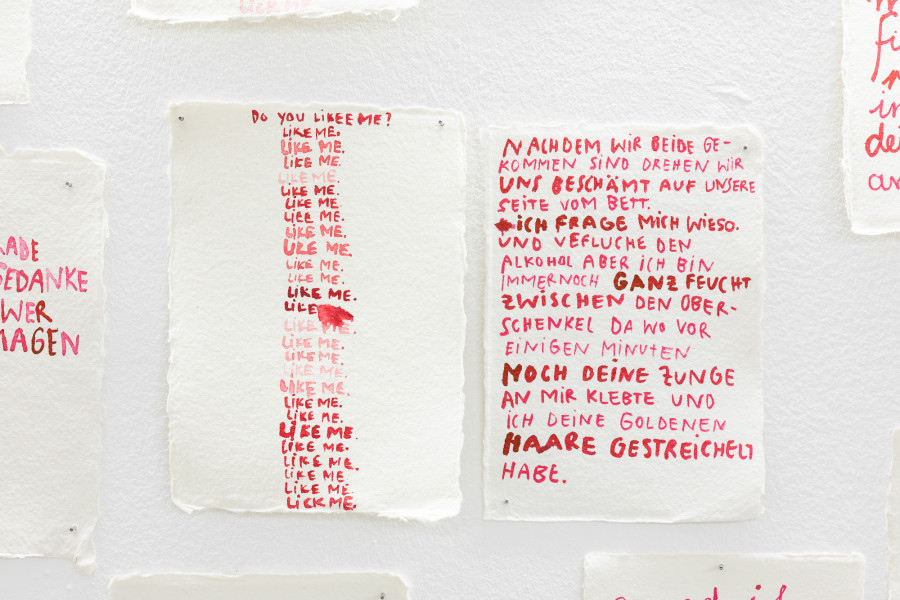 LICK ME
RADE
GEDANKE
WER
MAGEN
DO YOU LIKEE ME?
LIKE ME.
LIKE ME.
LIKE ME.
LIKE ME.
LIKE ME.
LIKE ME.
LIEE ME.
LIKE ME.
LIKE ME.
LIKE ME.
LIKE ME.
LIKE ME.
LIKE
LIKE ME.
LIKE ME.
LIKE ME.
LIKE ME.
LIKE ME.
LIKE ME.
LIKE ME.
LIKE ME.
LIKE ME.
LIKE ME.
LIKE ME.
LIKE ME.
LICK ME.
NACHDEM WIR BEIDE GE-
KOMMEN SIND DREHEN WIR
UNS BESCHÄMT AUF UNSERE
SEITE VOM BETT.
ICH FRAGE MICH WIESO.
UND VEFLUCHE DEN
ALKOHOL ABER ICH BIN
IMMERNOCH GANZ FEUCHT
ZWISCHEN DEN OBER-
SCHENKEL DA WO VOR
EINIGEN MINUTEN
NOCH DEINE ZUNGE
AN MIR KLEBTE UND
ICH DEINE GOLDENEN
HAARE GESTREICHELT
HABE.
fi
in
dei
an